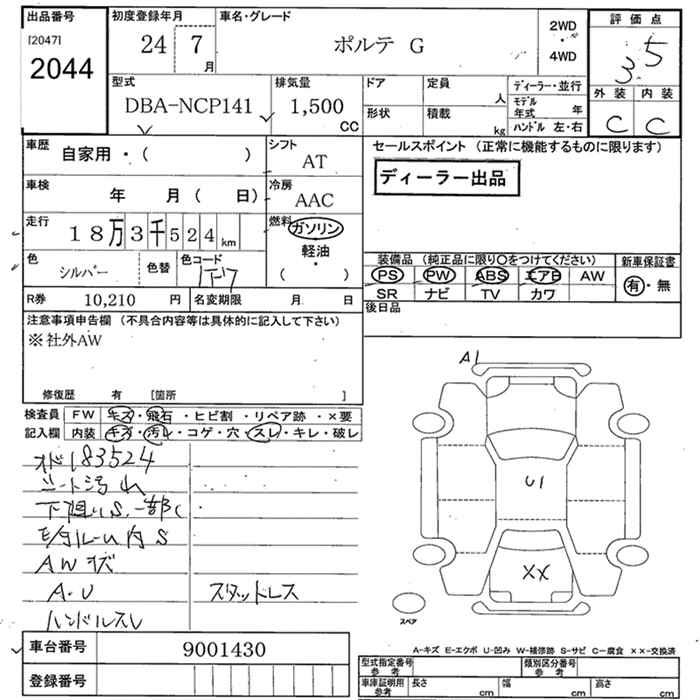 出品番号 初度登録年月 車名・グレード 2WD ・ 4WD 評価点
[2047] 2044 24 7 月 ポルテ G 3.5
型式 排気量 ドア 定員 人 ディーラー・並行 外装 内装
DBA-NCP141 1,500 CC 形状 積載 kg モデル年式 年 C C
ハンドル 左・右
車歴 自家用・( ) シフト AT セールスポイント (正常に機能するものに限ります)
車検 年 月 ( 日) 冷房 AAC ディーラー出品
走行 18万3千524 km 燃料 ガソリン 軽油 ・ ( )
色 シルバー 色替 色コード 1F7
装備品 (純正品に限り〇をつけてください) 新車保証書
PS PW ABS エアB AW 有・無
SR ナビ TV カワ
R券 10,210 円 名変期限 月 日 後日品
注意事項申告欄 (不具合内容等は具体的に記入して下さい)
※社外AW
修復歴 有 [箇所 ]
A1
検査員 FW キズ・飛石・ヒビ割・リペア跡・×要
記入欄 内装 キズ・汚レ・コゲ・穴・スレ・キレ・破レ
オドル 83524
シート汚れ
下廻りS.一部C
モタルーム内S
AWキズ
A・U スタットレス
ハンドルスレ
U1
XX
スペア
車台番号 9001430
登録番号
A-キズ E-エクボ U-凹み W-補修跡 S-サビ C-腐食 ××-交換済
型式指定番号 参考 類別区分番号 参考
車庫証明用 参考 長さ cm 幅 cm 高さ cm